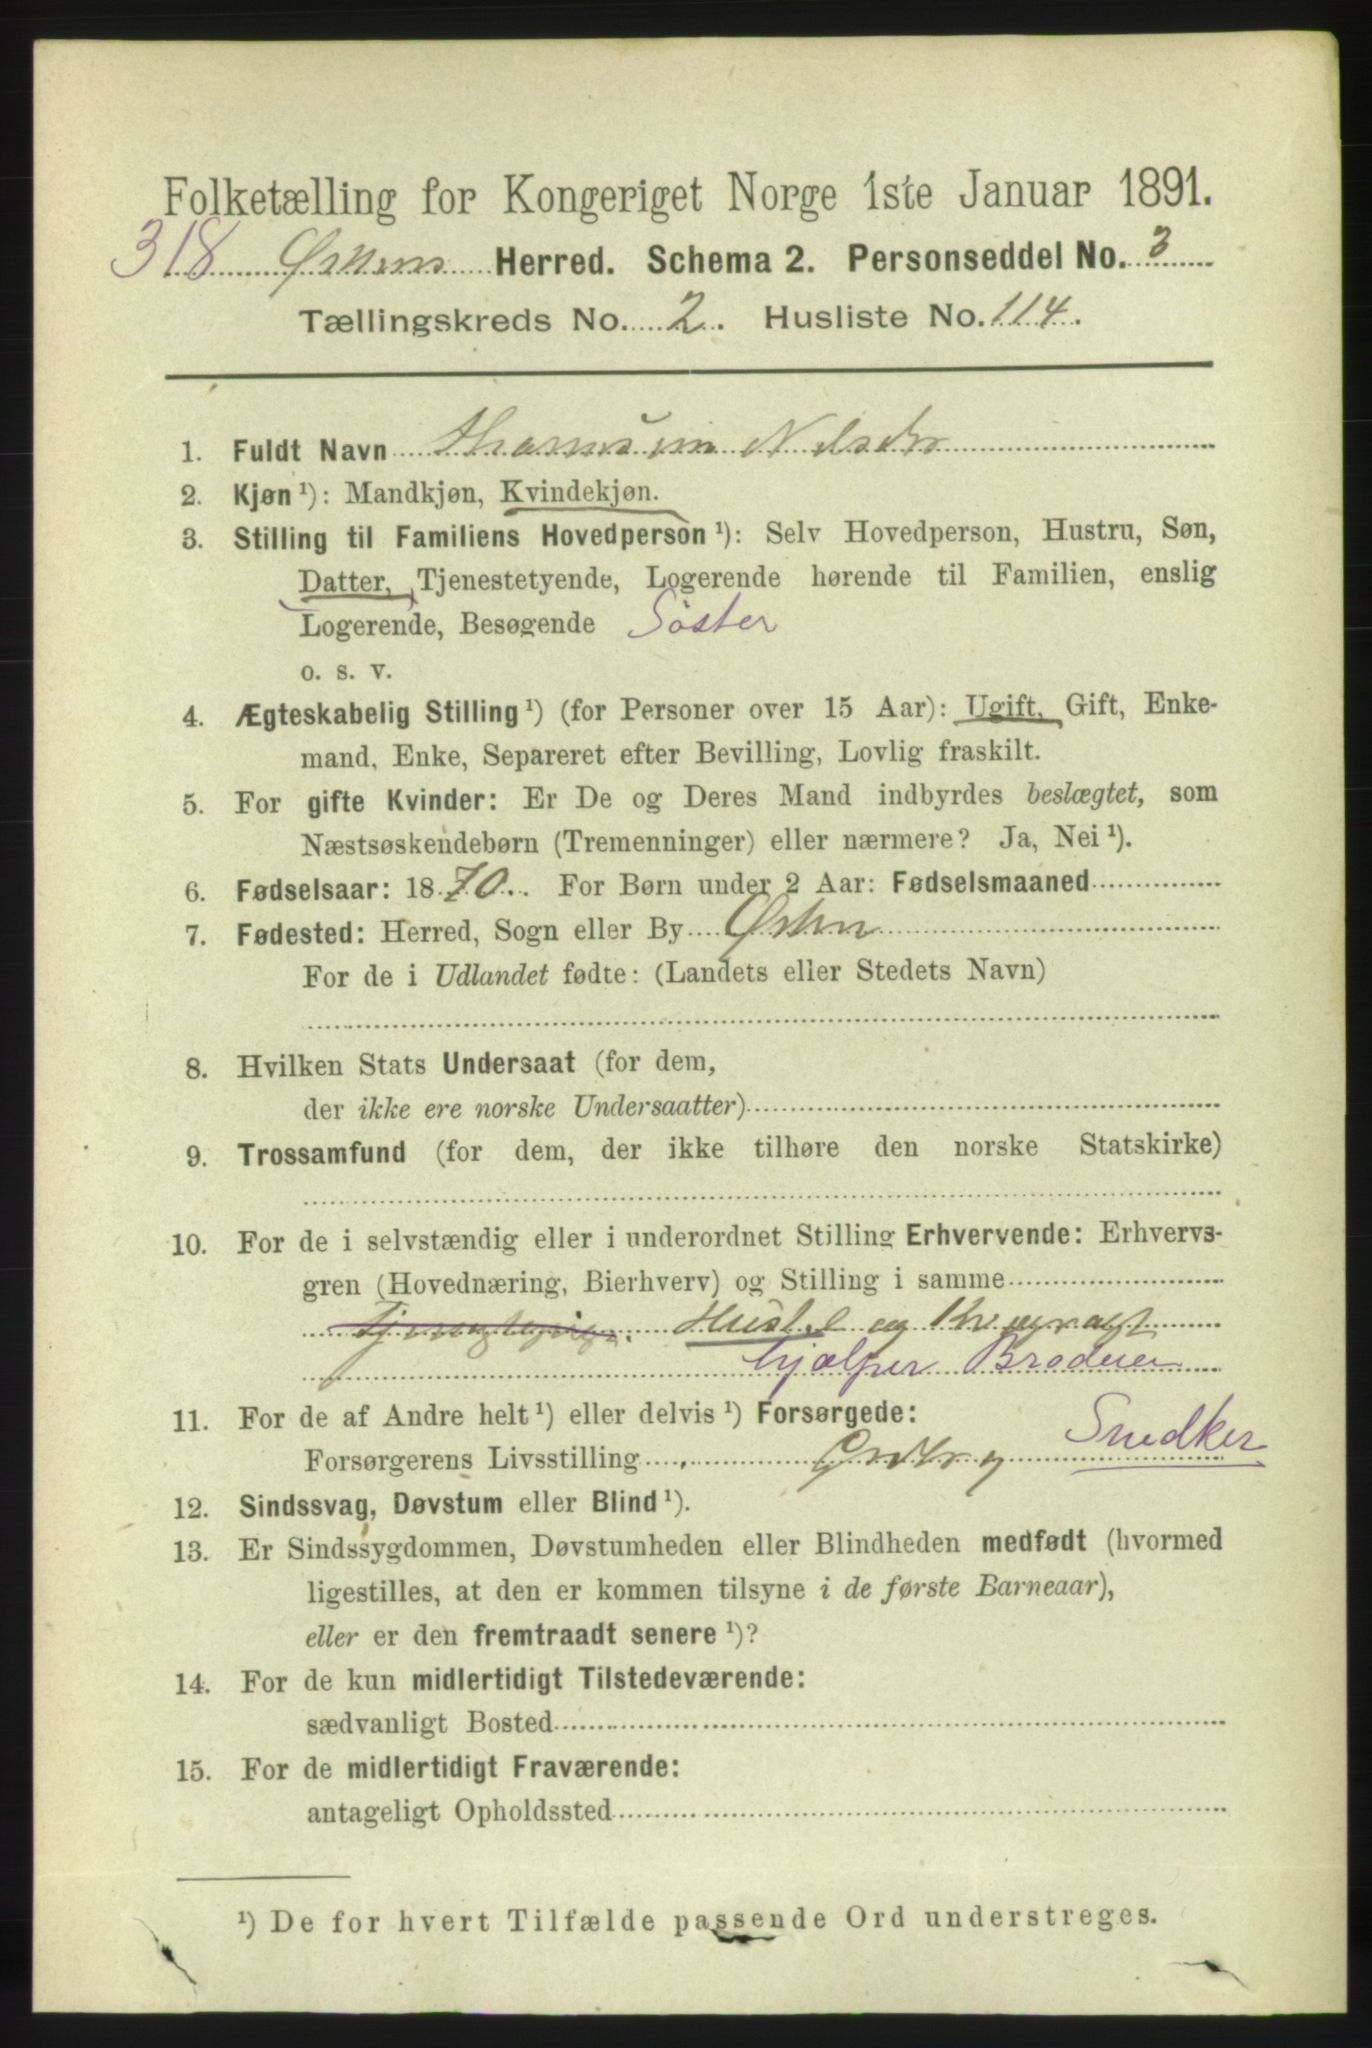 Folketælling for Kongeriget Norge 1ste Januar 1891.
318 Herred. Schema 2. Personseddel No. 3
Tællingskreds No. 2. Husliste No. 114.
1. Fuldt Navn
2. Kjøn ¹): Mandkjøn, Kvindekjøn.
3. Stilling til Familiens Hovedperson ¹): Selv Hovedperson, Hustru, Søn,
Datter, Tjenestetyende, Logerende hørende til Familien, enslig
Logerende, Besøgende Søster
o. s. v.
4. Ægteskabelig Stilling ¹) (for Personer over 15 Aar): Ugift, Gift, Enke-
mand, Enke, Separeret efter Bevilling, Lovlig fraskilt.
5. For gifte Kvinder: Er De og Deres Mand indbyrdes beslægtet, som
Næstsøskendebørn (Tremenninger) eller nærmere? Ja, Nei ¹).
6. Fødselsaar: 1870. For Børn under 2 Aar: Fødselsmaaned
7. Fødested: Herred, Sogn eller By
For de i Udlandet fødte: (Landets eller Stedets Navn)
8. Hvilken Stats Undersaat (for dem,
der ikke ere norske Undersaatter)
9. Trossamfund (for dem, der ikke tilhøre den norske Statskirke)
10. For de i selvstændig eller i underordnet Stilling Erhvervende: Erhvervs-
gren (Hovednæring, Bierhverv) og Stilling i samme
Husl og
hjælper Broderen
11. For de af Andre helt ¹) eller delvis ¹) Forsørgede:
Forsørgerens Livsstilling Snedker
12. Sindssvag, Døvstum eller Blind ¹).
13. Er Sindssygdommen, Døvstumheden eller Blindheden medfødt (hvormed
ligestilles, at den er kommen tilsyne i de første Barneaar),
eller er den fremtraadt senere ¹)?
14. For de kun midlertidigt Tilstedeværende:
sædvanligt Bosted
15. For de midlertidigt Fraværende:
antageligt Opholdssted
¹) De for hvert Tilfælde passende Ord understreges.